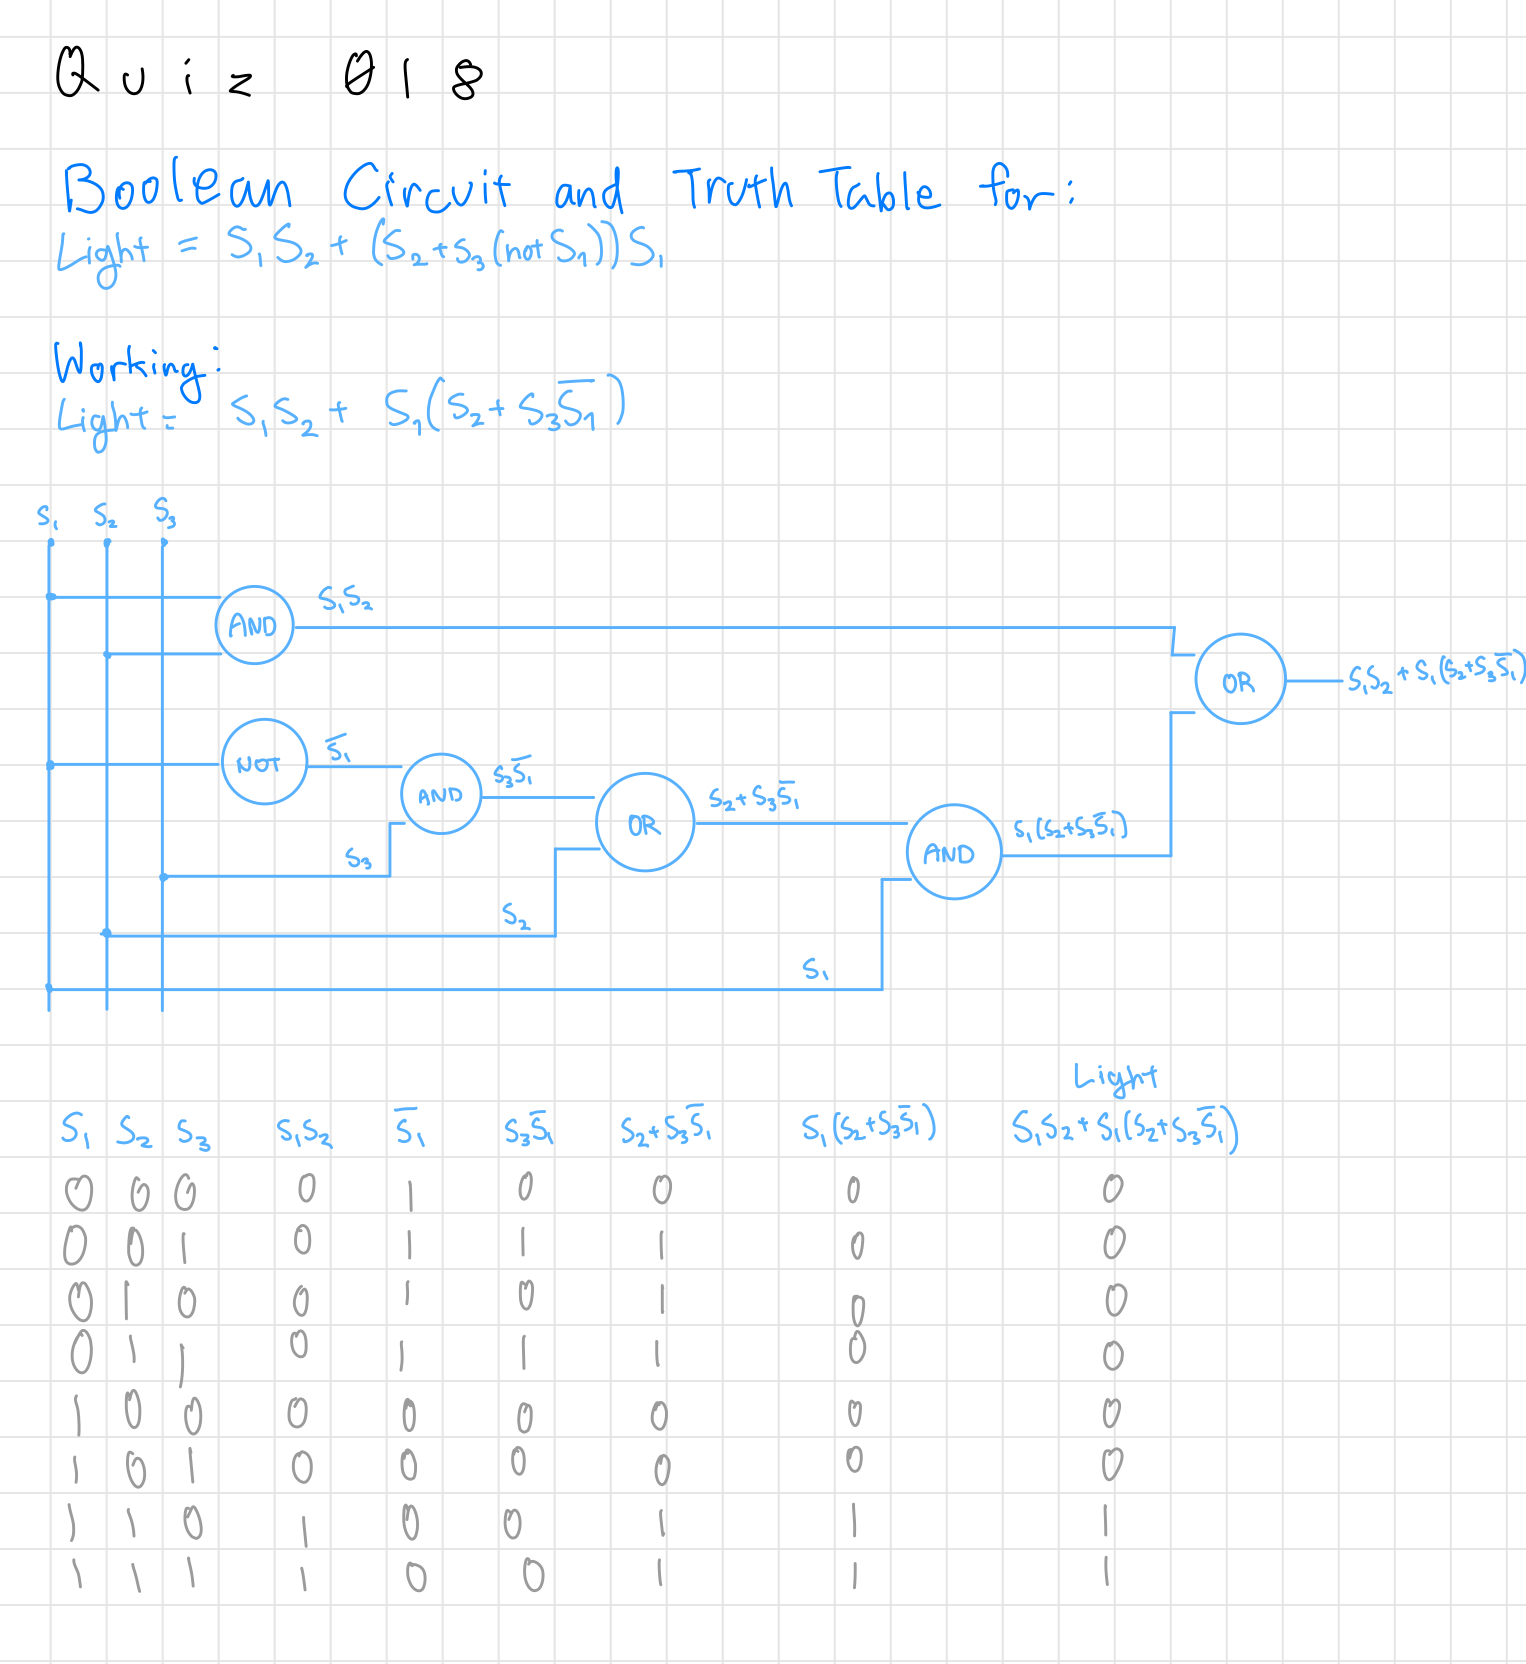 Quiz 018
Boolean Circuit and Truth Table for:
Light = S₁S₂ + (S₂+S₃(not S₁))S₁
Working:
Light = S₁S₂ + S₁(S₂+S₃S̅₁)
S₁ S₂ S₃
AND S₁S₂
OR S₁S₂ + S₁(S₂+S₃S̅₁)
NOT S̅₁
AND S₃S̅₁
OR S₂+S₃S̅₁
AND S₁(S₂+S₃S̅₁)
S₃
S₂
S₁
Light
S₁ S₂ S₃ S₁S₂ S̅₁ S₃S̅₁ S₂+S₃S̅₁ S₁(S₂+S₃S̅₁) S₁S₂+S₁(S₂+S₃S̅₁)
0 0 0 0 1 0 0 0 0
0 0 1 0 1 1 1 0 0
0 1 0 0 1 0 1 0 0
0 1 1 0 1 1 1 0 0
1 0 0 0 0 0 0 0 0
1 0 1 0 0 0 0 0 0
1 1 0 1 0 0 1 1 1
1 1 1 1 0 0 1 1 1